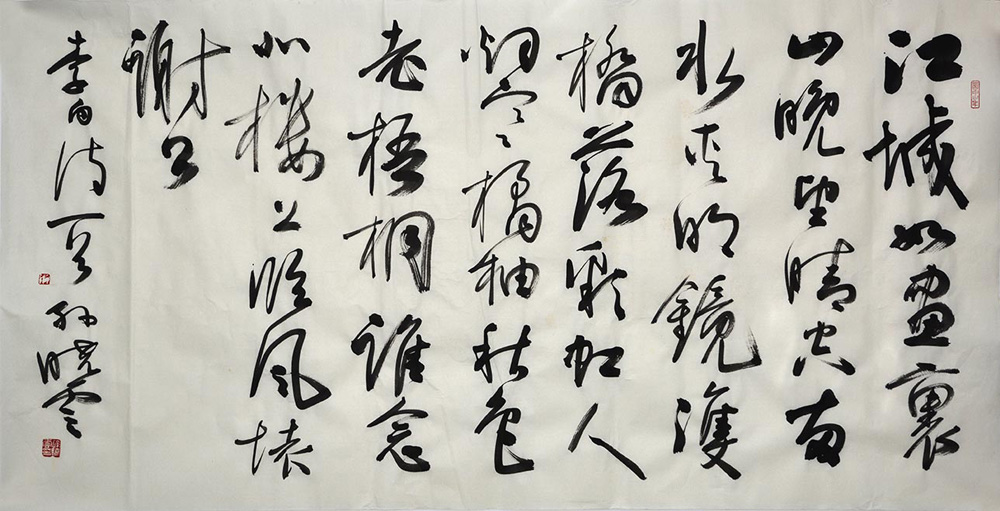 江城如畫裏
山晚望晴空兩
水夾明鏡雙
橋落彩虹人
烟寒橘柚秋色
老梧桐誰念
北樓上臨風懷
謝公
李白詩一首 孫曉雲